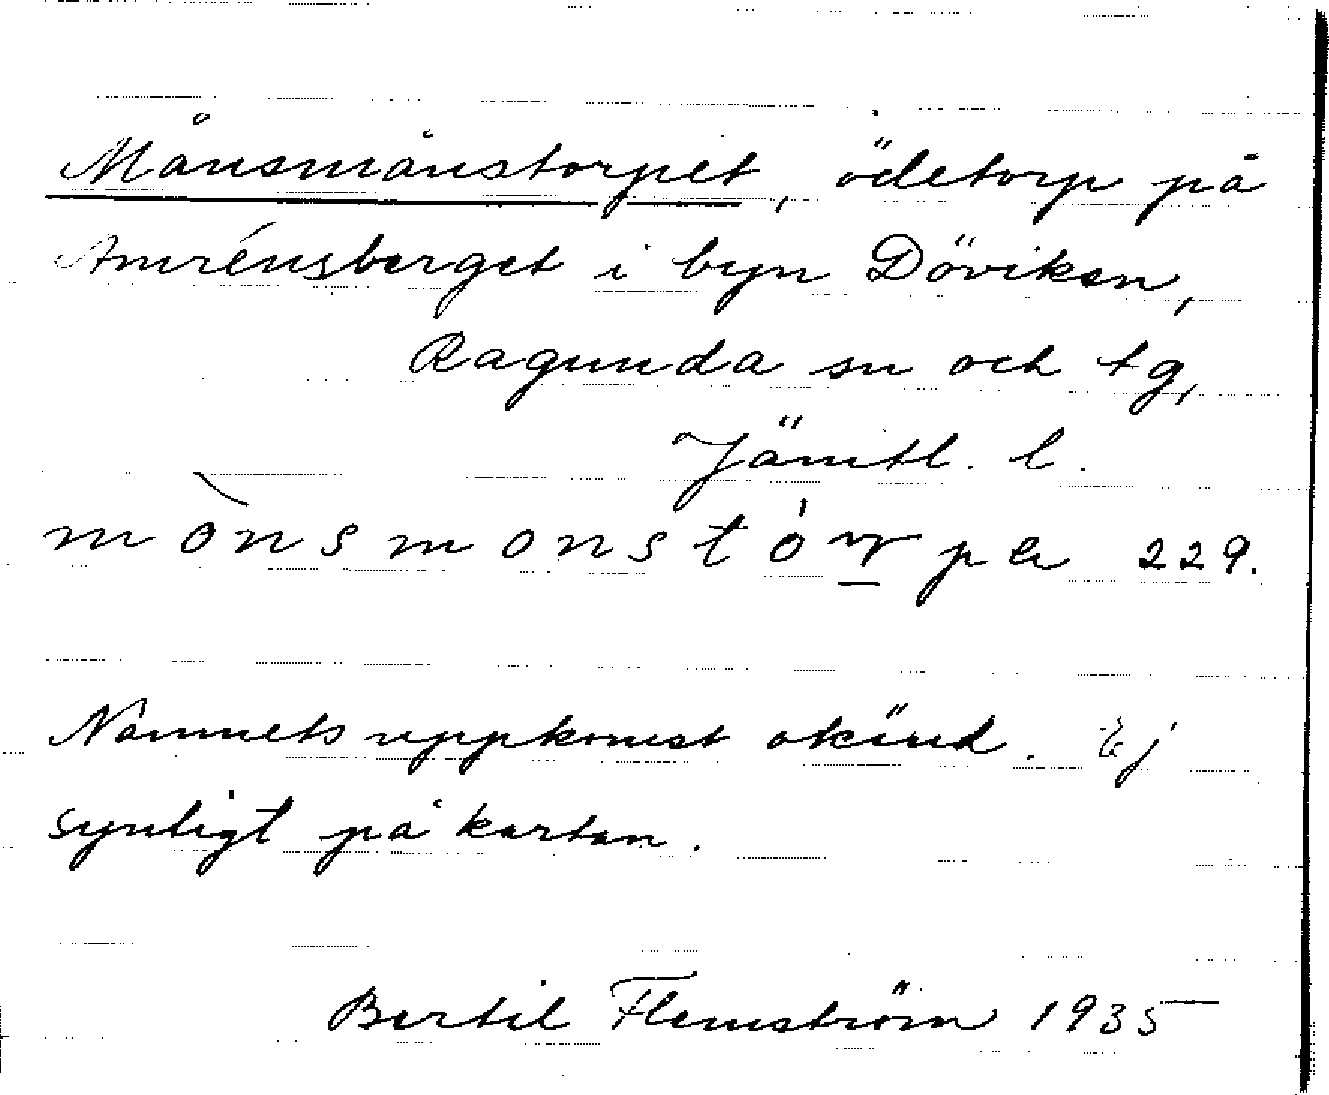 Månsmånstorpet, ödetorp på
Amrénsberget i byn Döviken,
Ragunda sn och tg,
Jämtl. l.
mònsmonstórpa 229.
Namnets uppkomst okänd. Ej
synligt på kartan.
Bertil Flemström 1935